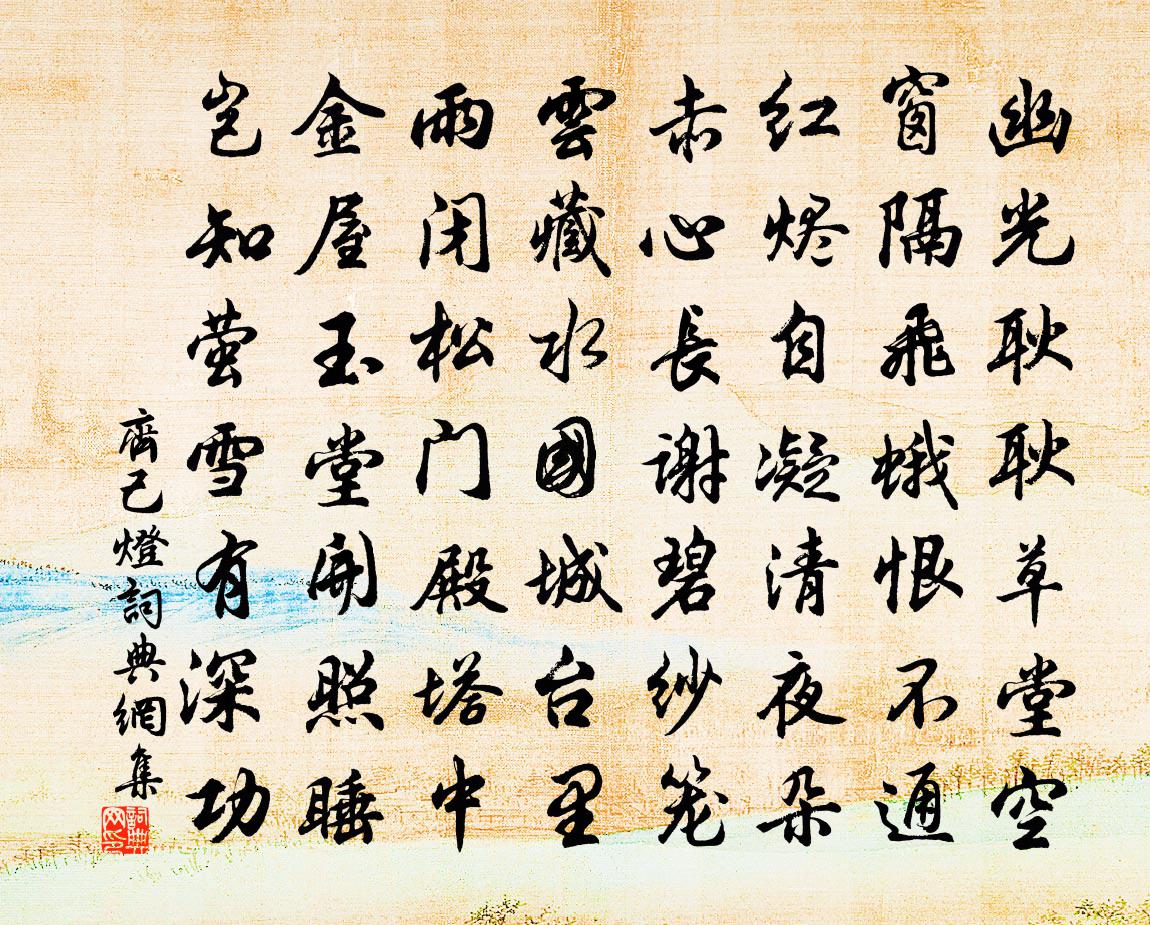 幽光耿耿草堂空
窗隔飛蛾恨不通
红烬自凝清夜朵
赤心長谢碧纱笼
雲藏水國城台里
雨闭松门殿塔中
金屋玉堂開照睡
岂知萤雪有深功
齊己燈詞典網集
詞典網印